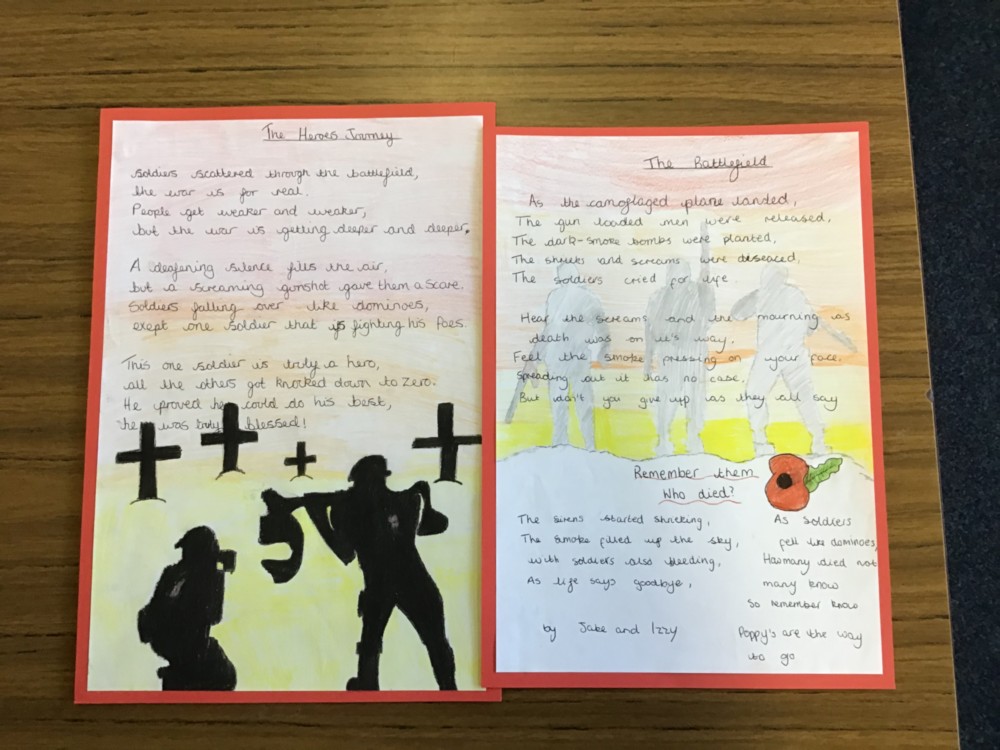 The Heroes Journey
Soldiers scattered through the battlefield,
the war is for real.
People get weaker and weaker,
but the war is getting deeper and deeper.
A deafening silence fills the air,
but a screaming gunshot gave them a scare.
Soldiers falling over like dominoes,
exept one soldier that is fighting his foes.
This one soldier is truly a hero,
all the others got knocked down to zero.
He proved he could do his best,
he was truly blessed!
The Battlefield
As the camoflaged plane landed,
The gun loaded men were released,
The dark-smoke bombs were planted,
The shrieks and screams were
The soldiers cried for life
Hear the screams and the mourning as
death was on it's way.
Feel the smoke pressing on your face.
Spreading out it has no case.
But don't you give up as they all say
Remember them
Who died?
The sirens started shrieking,
The smoke filled up the sky,
with soldiers also bleeding,
As life says goodbye,
by Jake and Izzy
As soldiers
fell like dominoes,
How many died not
many know
So remember know
Poppy's are the way
to go